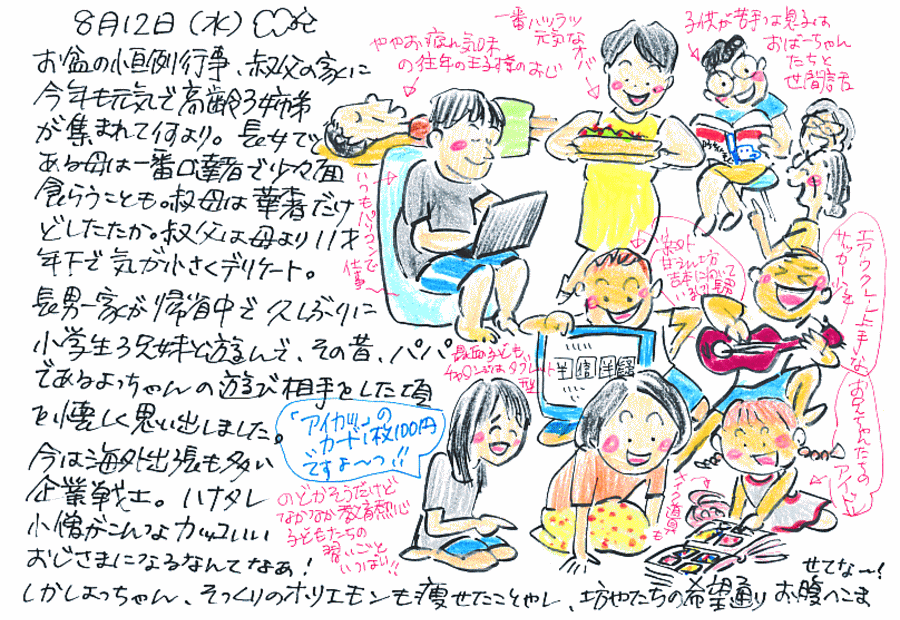 8月12日（水）
お盆の恒例行事、叔父の家に
今年も元気で高齢3姉弟
が集まれて何より。長女で
ある母は一番口達者で少々面
食らうことも。叔母は華奢だけ
どしたたか。叔父は母より11才
年下で気が小さくデリケート。
長男一家が帰省中で久しぶりに
小学生3兄妹と遊んで、その昔、パパ
であるよっちゃんの遊び相手をした頃
を懐しく思い出しました。
今は海外出張も多い
企業戦士。ハナタレ
小僧がこんなカッコいい
おじさまになるなんてなぁ！
しかしよっちゃん、そっくりのホリエモンも痩せたことやし、坊やたちの希望通りお腹へこま
せてな〜！
ややお疲れ気味
の往年の王子様のおじ
一番ハツラツ
元気な
子供が苦手な息子は
おばーちゃん
たちと
世間話
いつもパソコンで
仕事
エアウクレレ上手いな
サッカー
お兄ちゃんたちの
アイドル
「アイカツ」の
カード1枚100円
ですよ〜っ!!
のどかそうだけど
なかなか教育熱心
子どもたちの
習いごと
いっぱい!!
メイク道具も